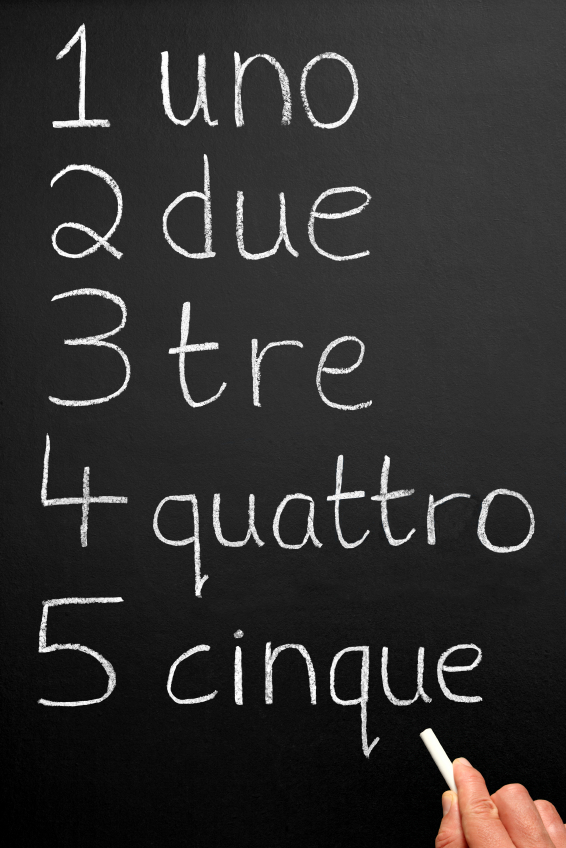 1 uno
2 due
3 tre
4 quattro
5 cinque